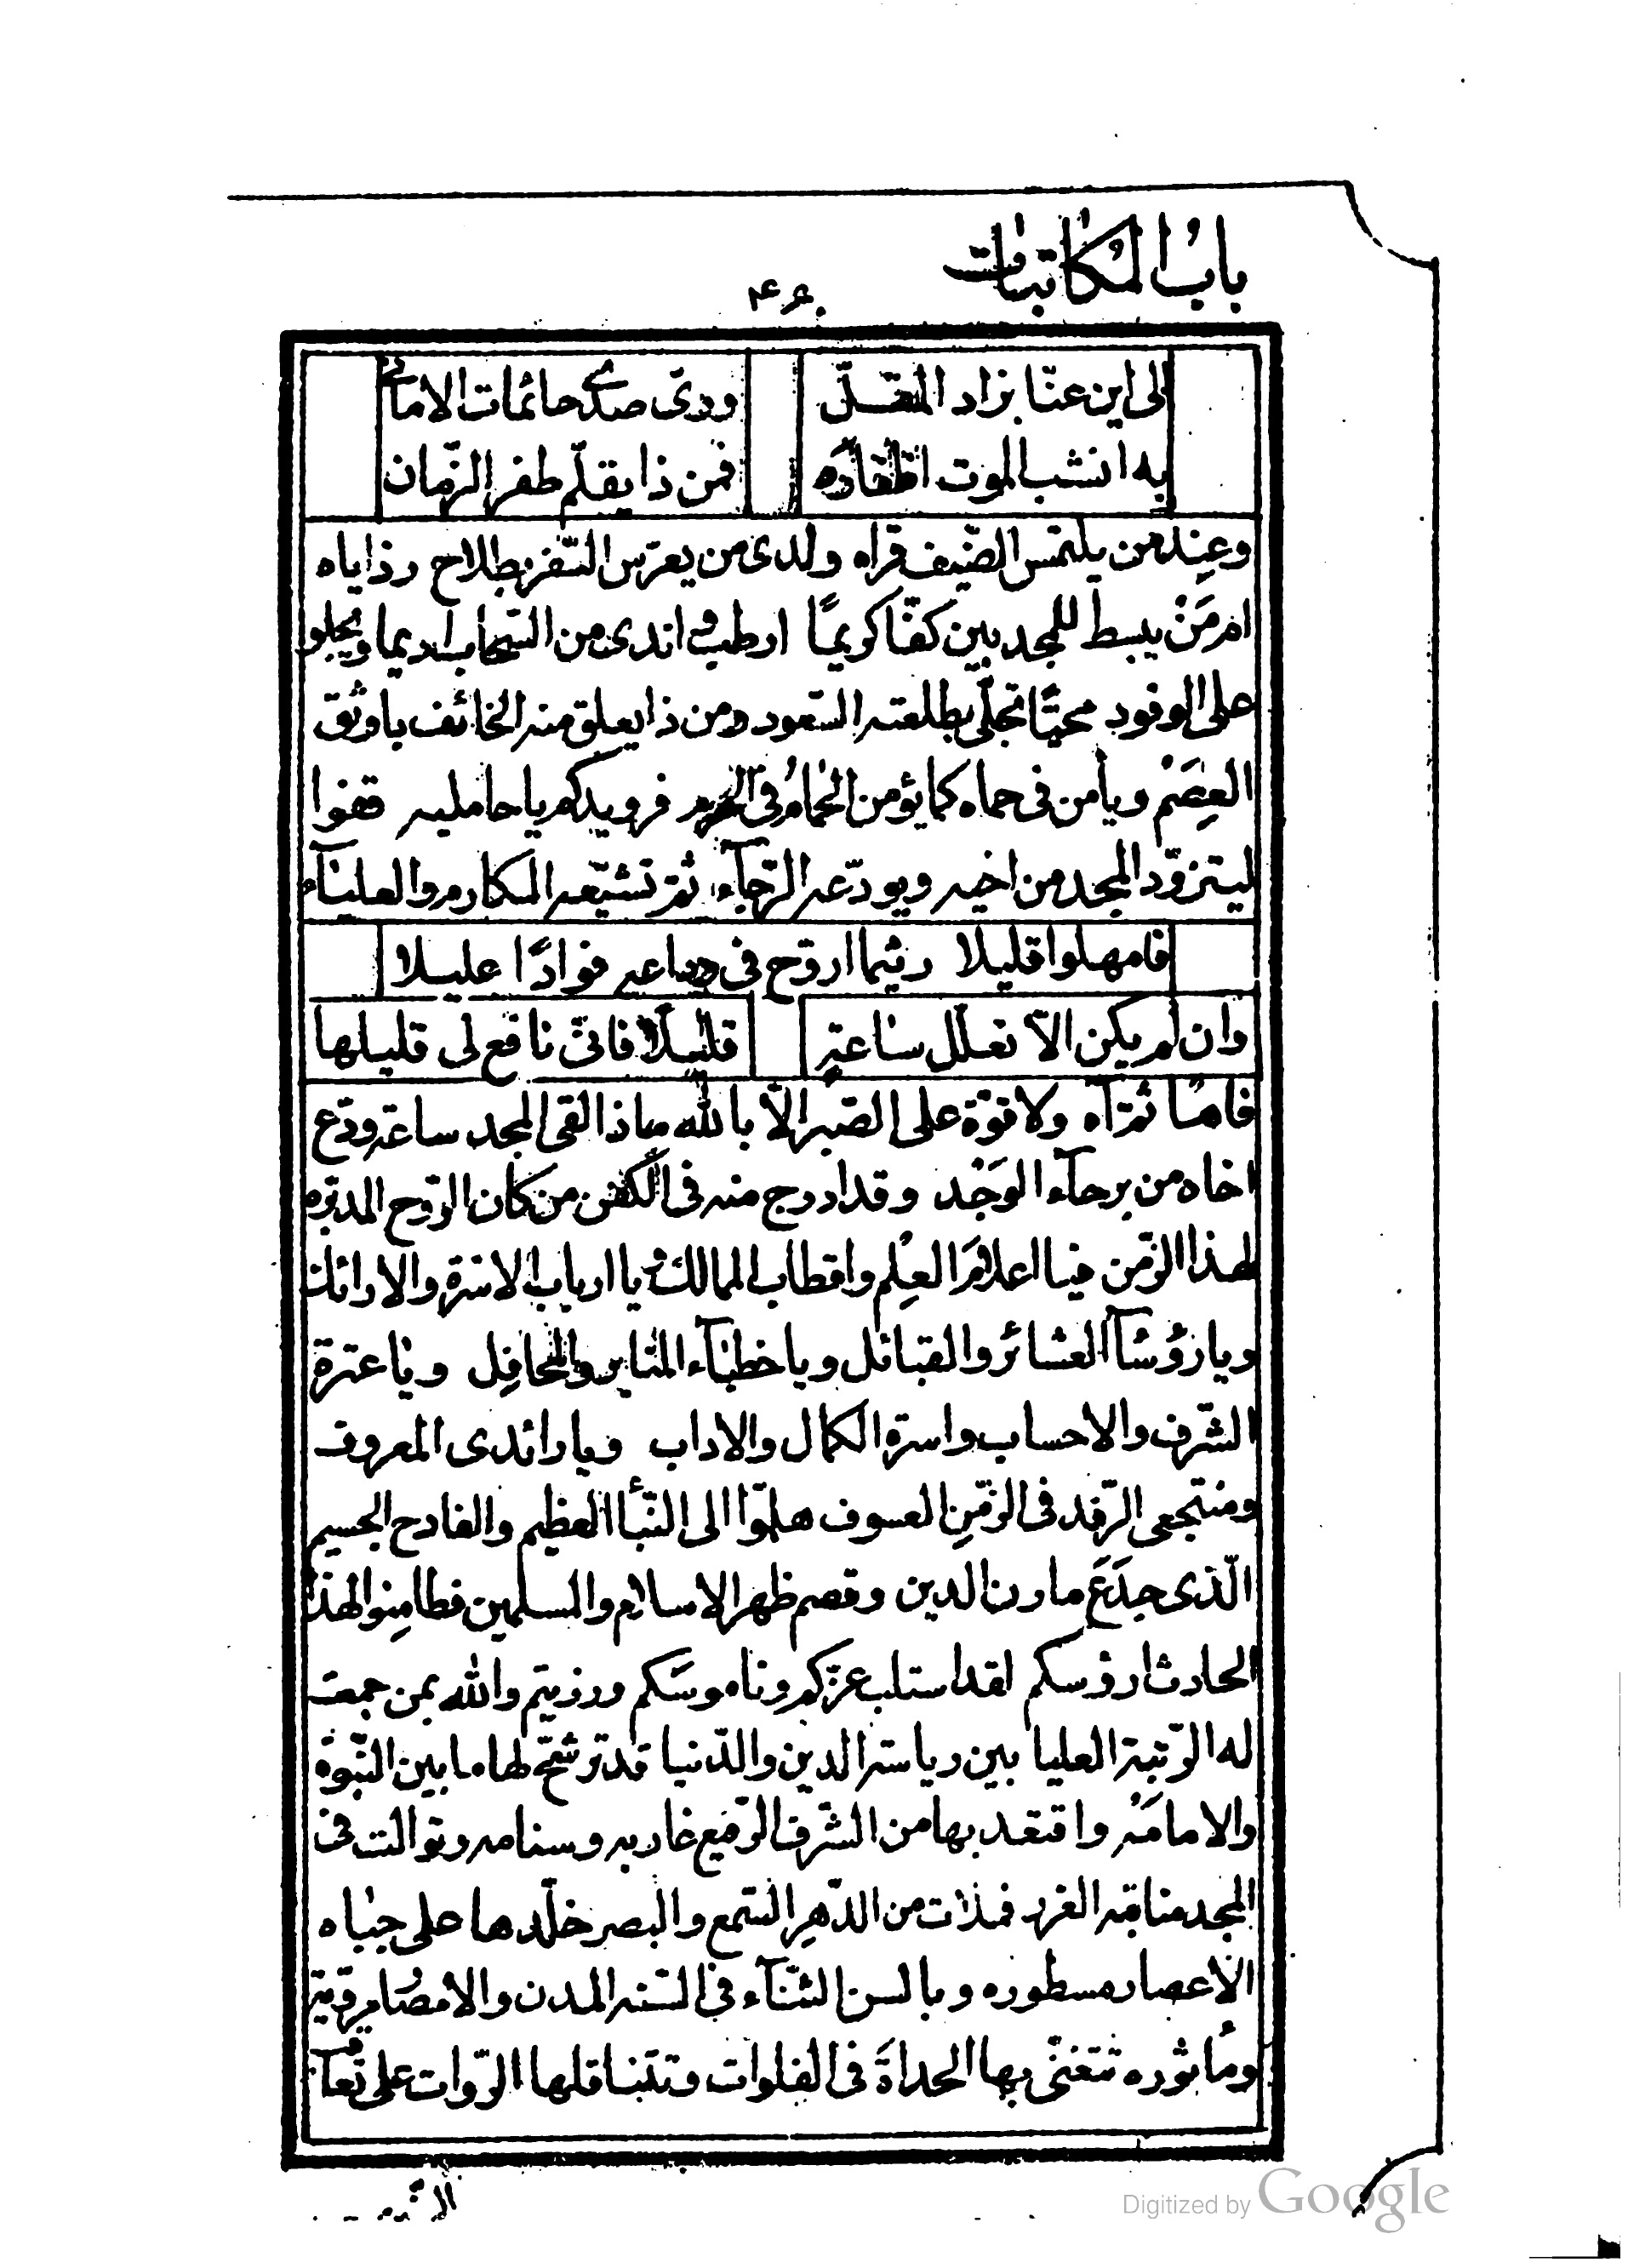 باب المكاتبات
الى اين عنّا بزاد المقلّ ورىّ صدى حائمات الامانى
به انشب الموت اظفاره فمن ذا يقلّم ظفر الزّمان
وعند من يلتمس الضّيف قراه ولدى من يعرّس السّفر بطلاح رذاياه
ام مَنْ يبسط للمجدبين كفّا كريمًا ارطب و اندى من السّحاب اديما ويجلو
على الوفود محيّا تجلّى بطلعته السّعود ومن ذا يعلق منه الخائف باوثق
العِصَمْ ويأمن فى حماه كما يؤمن الحمامُ فى الحرم فرويدكم يا حامليه قفوا
ليتزوّد المجد من اخيه ويودّعه الرّجآء ثمّ تشيّعه المكارم والعليآء
فامهلوا قليلا ريثما اروّح فى وداعه فوادًا عليلا
وان لم يكن الاّ تعلّل ساعة قليلًا فانّى نافع لى قليلها
فاها ثمّ آه ولا قوّة على الصّبر الاّ بالله ماذا لقى المجد ساعة ودّع
اخاه من برحآء الوَجْد وقد ادرج منه فى الكفن من كان الرّوح المدبّره
لهذا الزّمن فيا اعلامَ العِلم واقطاب الممالك و يا ارباب الاسرة والارائك
ويا رؤسآ العشائر والقبائل ويا خطبآء المنابر والمحافِل ويا عترة
الشّرف والاحساب واسرة الكمال والاداب ويا رائدى المعروف
ومنتجعى الرّفد فى الزّمنِ العسوف هلمّوا الى النّبأ العظيم والفادح الجسيم
الّذى جدَعَ مارن الدين وقصم ظهر الاسلام والمسلمين فطامِنوا لهذا
الحادث ارؤسكم لقد استلب عزّكم وناموسَكم ورزيتم والله بمن جمعت
له الرّتبة العليا بين رياسة الدين والدّنيا قد ترشّح لها ما بين النّبوّة
والامامَة واقتعد بها من الشّرف الرّفيع غاربه وسنامه وتوالت فى
المجد مناقبه الغرر فملات من الدّهر السّمع والبصر خلّدها على جباه
الاعصار مسطوره وبالسن الثّنآء فى السّنه المدن والامصار مرويّة
وماثوره تتغنّى بها الحداةَ فى الفلوات وتتناقلها الرّوات على تعا